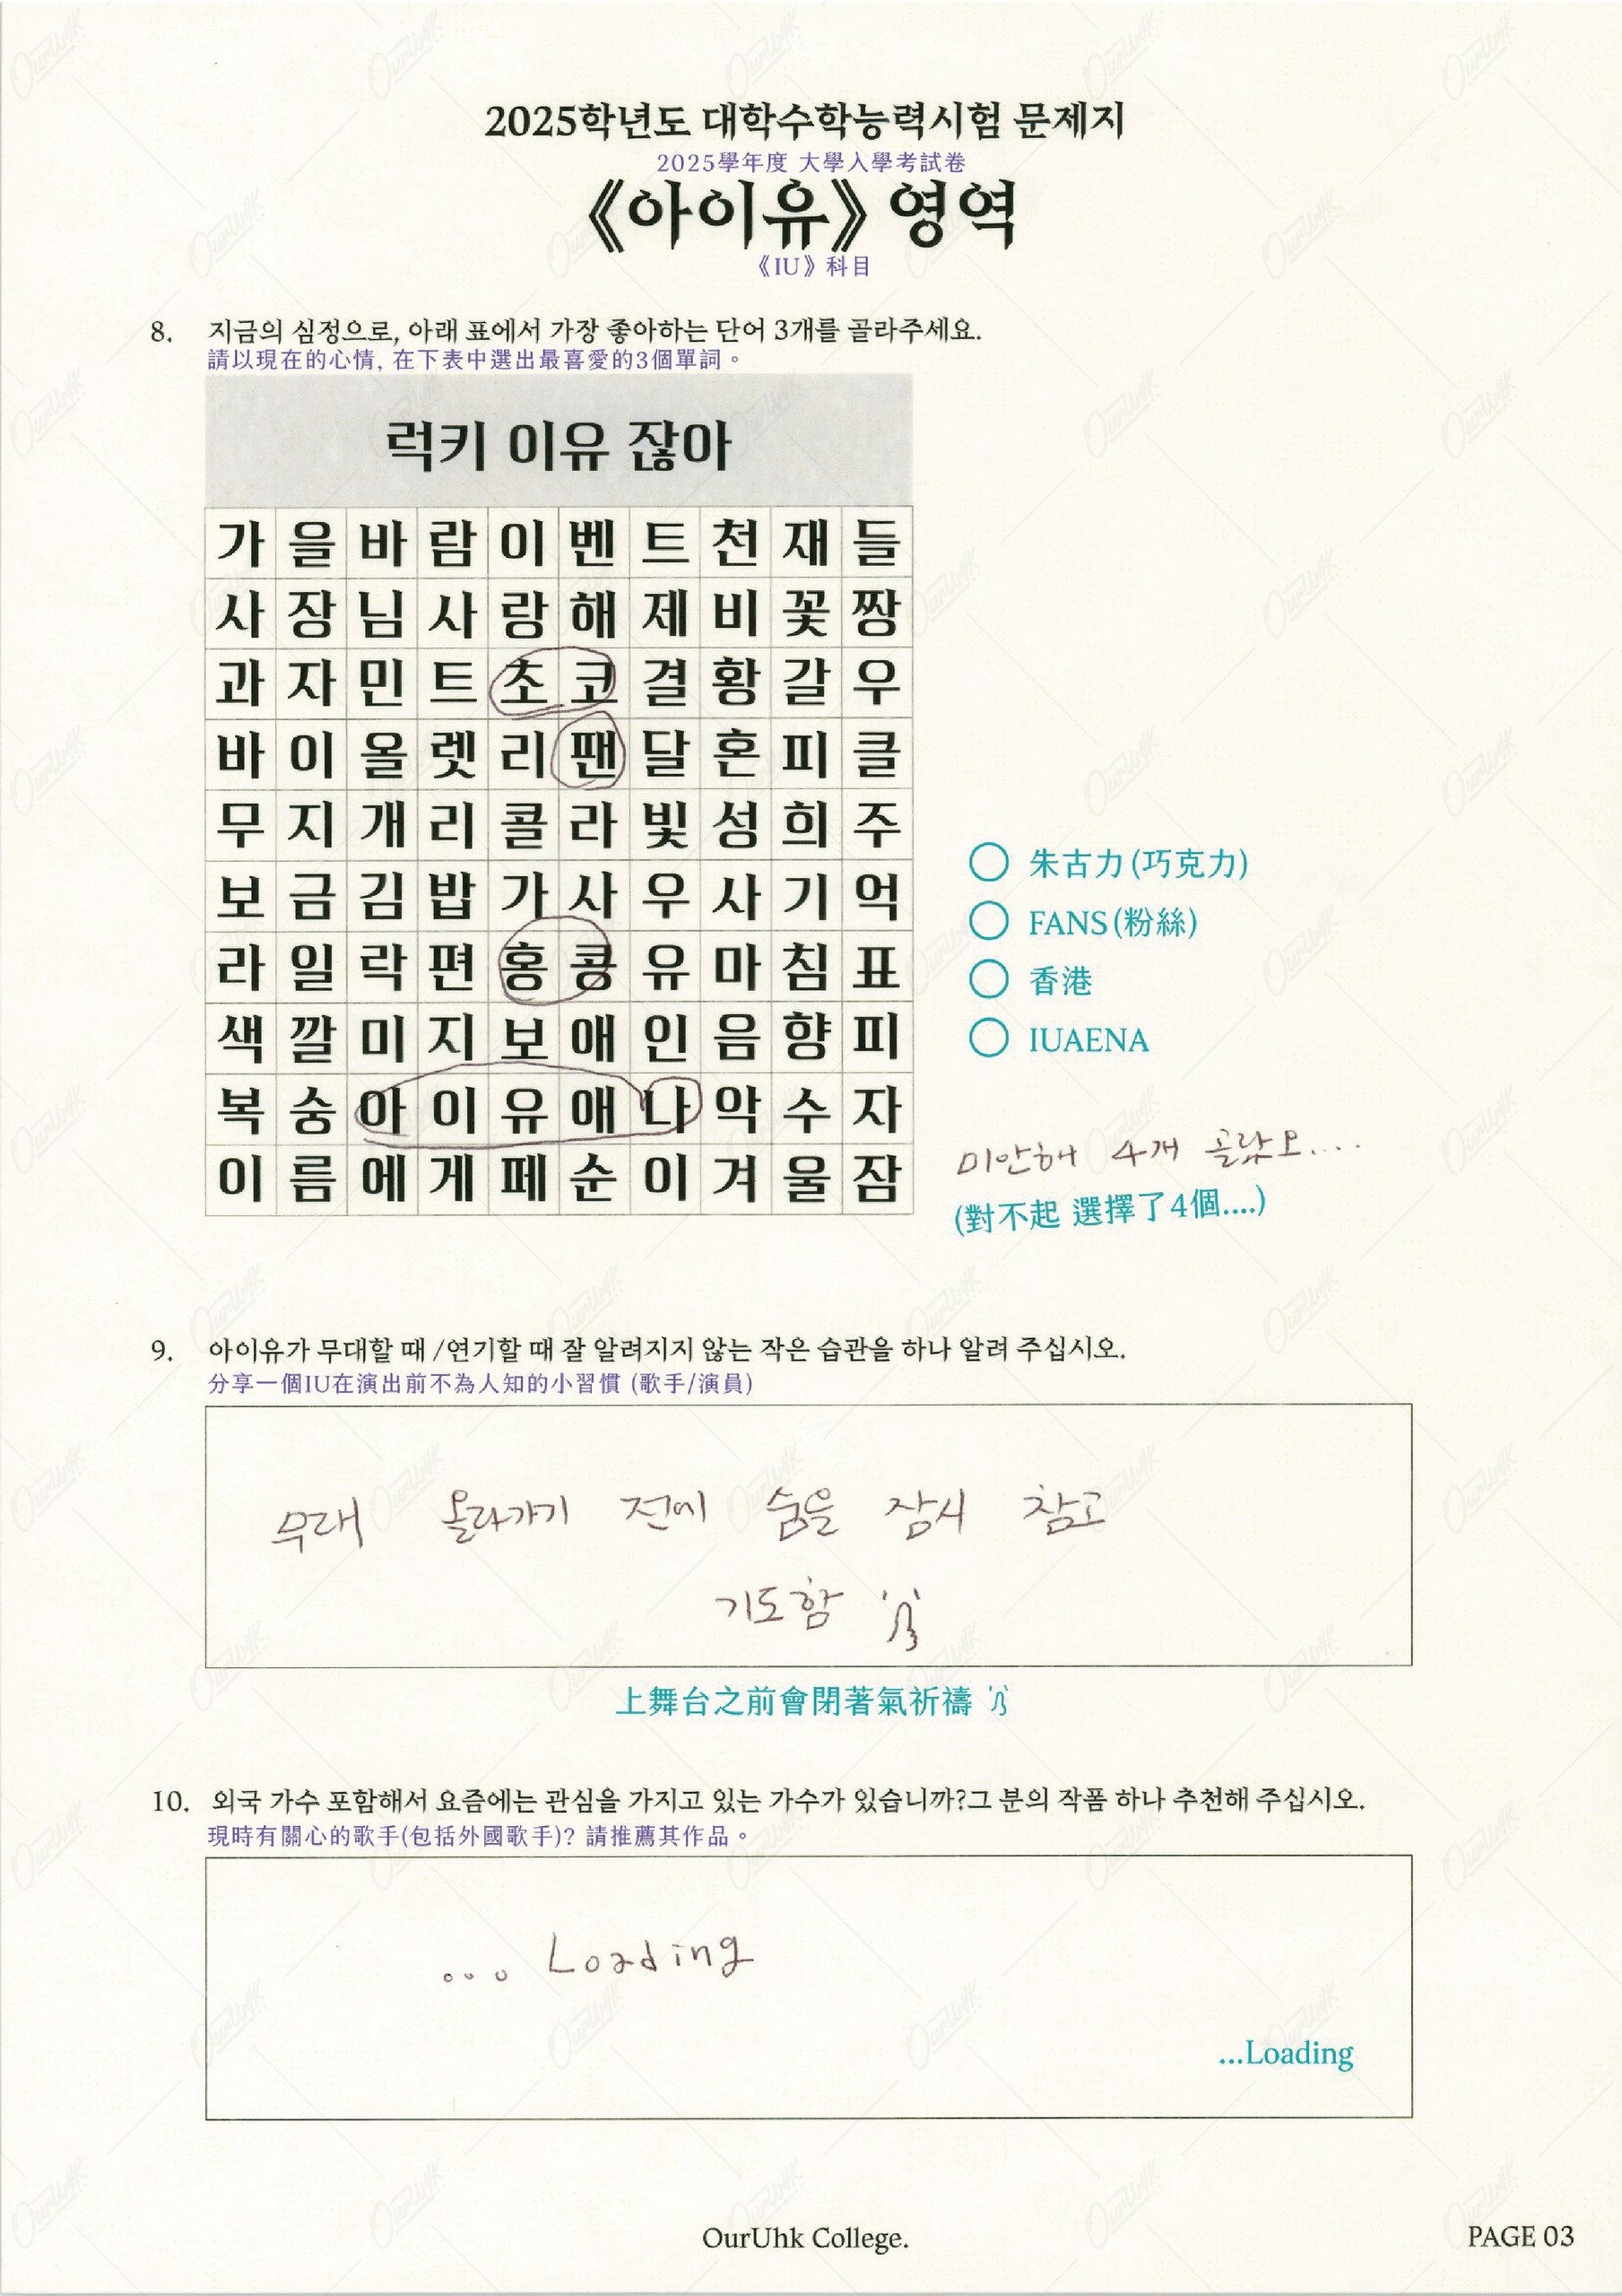 2025학년도 대학수학능력시험 문제지
2025學年度 大學入學考試卷
《아이유》 영역
《IU》科目
8. 지금의 심정으로, 아래 표에서 가장 좋아하는 단어 3개를 골라주세요.
請以現在的心情, 在下表中選出最喜愛的3個單詞。
럭키 이유 잖아
가 을 바 람 이 벤 트 천 재 들
사 장 님 사 랑 해 제 비 꽃 짱
과 자 민 트 초 코 결 황 갈 우
바 이 올 렛 리 팬 달 혼 피 클
무 지 개 리 콜 라 빛 성 희 주
보 금 김 밥 가 사 우 사 기 억
라 일 락 편 홍 콩 유 마 침 표
색 깔 미 지 보 애 인 음 향 피
복 숭 아 이 유 애 나 악 수 자
이 름 에 게 페 순 이 겨 울 잠
朱古力(巧克力)
FANS(粉絲)
香港
IUAENA
미안해 4개 골랐오....
(對不起 選擇了4個....)
9. 아이유가 무대할 때 /연기할 때 잘 알려지지 않는 작은 습관을 하나 알려 주십시오.
分享一個IU在演出前不為人知的小習慣 (歌手/演員)
무대 올라가기 전에 숨을 잠시 참고
기도함
上舞台之前會閉著氣祈禱
10. 외국 가수 포함해서 요즘에는 관심을 가지고 있는 가수가 있습니까?그 분의 작폼 하나 추천해 주십시오.
現時有關心的歌手(包括外國歌手)? 請推薦其作品。
... Loading
...Loading
OurUhk College.
PAGE 03